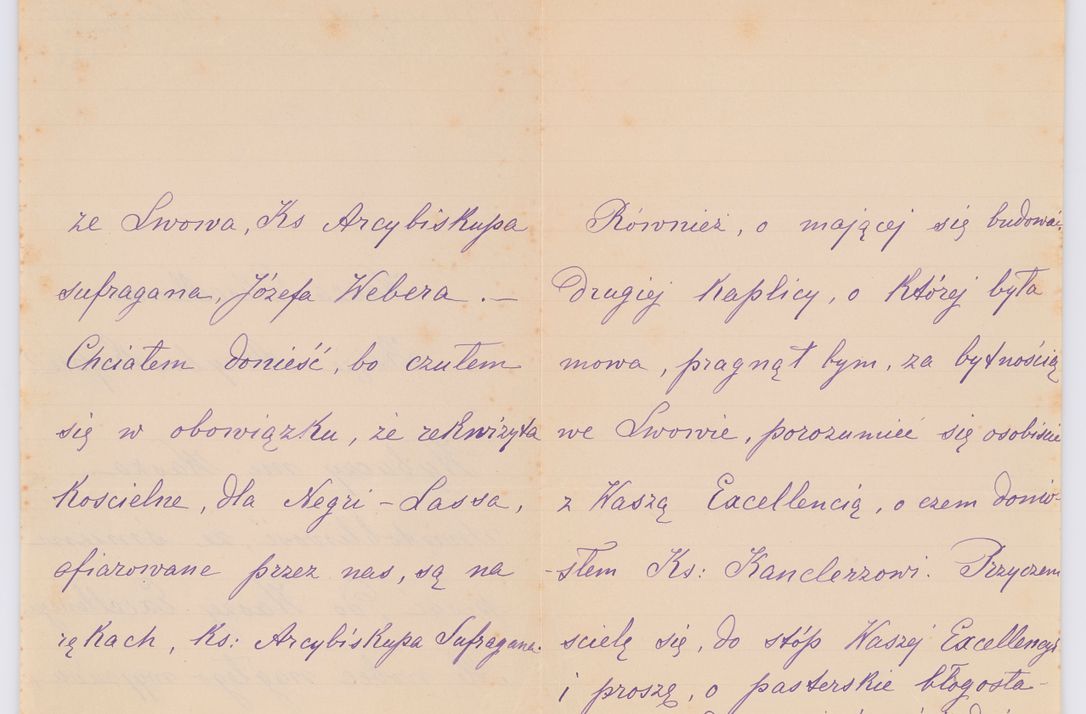 ze Lwowa, Ks Arcybiskupa
sufragana, Józefa Webera . —
Chciałem donieść, bo czułem
się w obowiązku, że rekwizyta
Koscielne, dla Negri - Lassa,
ofiarowane przez nas, są na
rękach, Ks: Arcybiskupa Sufragana.
Również, o mającej się budować
Drugiej Kaplicy, o której była
mowa, pragnął bym, za bytnością
we Lwowie, porozumieć się osobiscie
z Waszą Excellencią, o czem donio-
-słem Ks: Kanclerzowi. Przyczem
scielę się, do stóp Waszej Excellencyi
i proszę, o pasterskie błogosła-